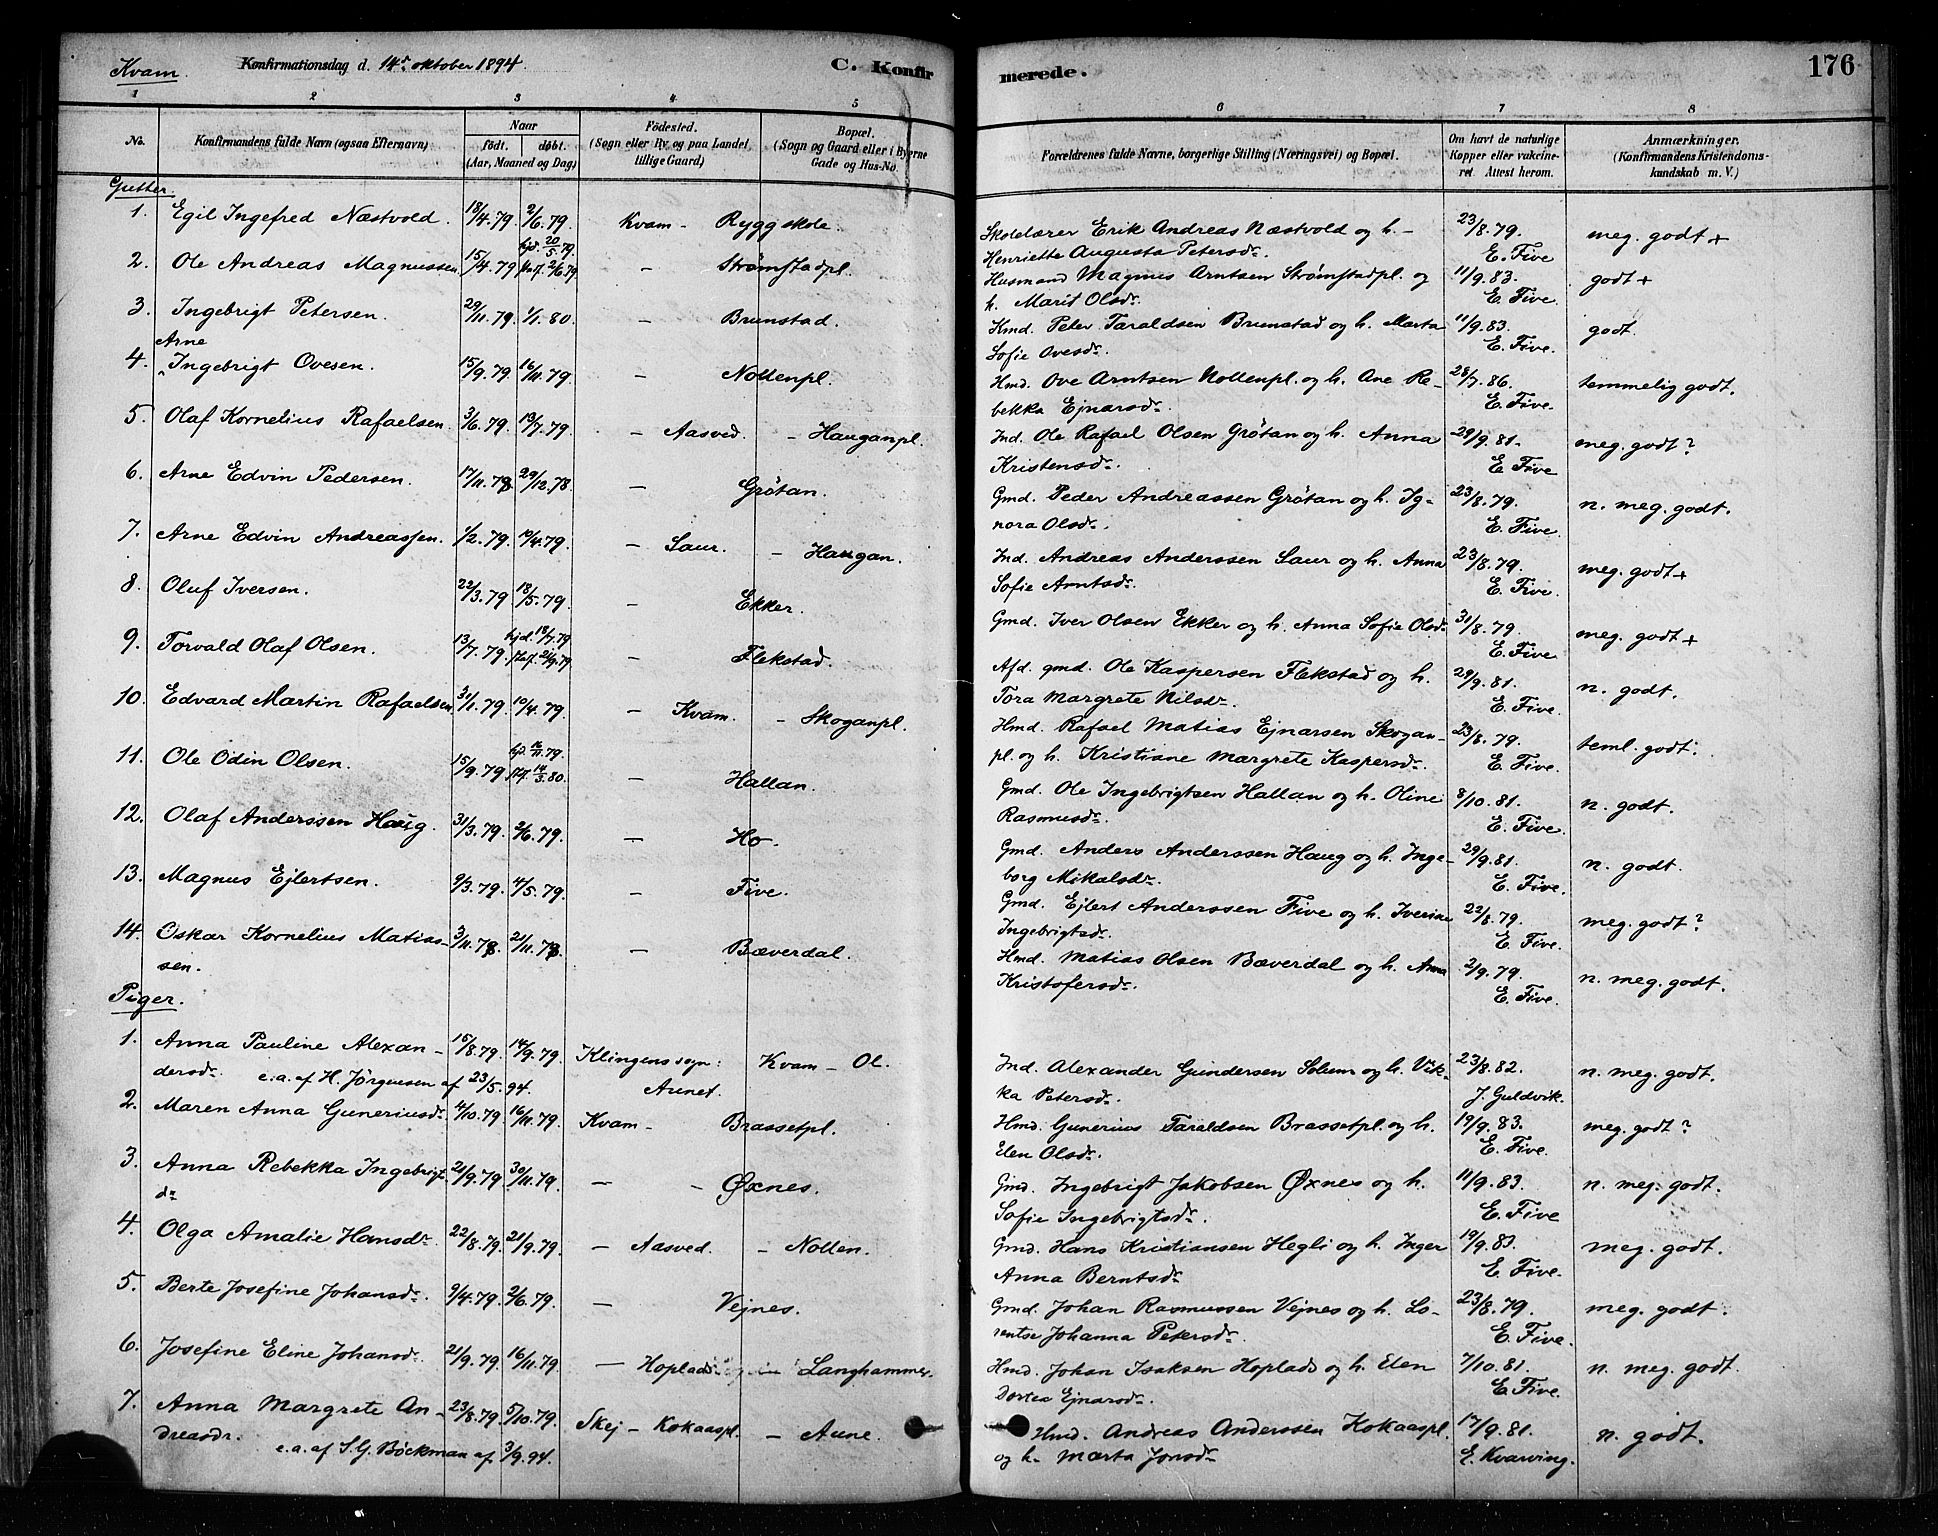 Kvam. Konfirmationsdag d. 14de oktober 1894. C. Konfirmerede. 176
1 2 3 4 5 6 7 8
No. Konfirmandens fulde Navn (ogsaa Efternavn) Naar født. døbt. (Aar, Maaned og Dag) Fødested. (Sogn eller By og paa Landet tillige Gaard) Bopæl. (Sogn og Gaard eller i Byerne Gade og Hus-No.) Forældrenes fulde Navne, borgerlige Stilling (Næringsvei) og Bopæl. Om havt de naturlige Kopper eller vakcineret. Attest herom. Anmærkninger. (Konfirmandens Kristendomskundskab m. V.)
Gutter.
1. Egil Ingefred Næstvold. 18/4.79 2/6.79. Kvam - Rygg skole. Skolelærer Erik Andreas Næstvold og h. 23/8.79. meg. godt +
Henriette Augusta Petersdr. E. Five
2. Ole Andreas Magnussen. 15/4.79 hjd. 20/5.79 stadf. 2/6.79 - Strømstadpl. Husmand Magnus Arntsen Strømstadpl. og 11/9.83. godt +
h. Marit Olsdr. E. Five
3. Ingebrigt Petersen. 29/11.79. 1/1.80 - Brunstad. Kmd. Peter Taraldsen Brunstad og h. Marta 11/9.83. godt.
Sofie Ovesdr. E. Five.
4. Arne Ingebrigt Ovesen. 15/9.79 16/11.79. - Nollenpl. Hmd. Ove Arntsen Nollenpl. og h. Ane Re- 28/7.86. temmelig godt.
bekka Ejnarsdr. E. Five.
5. Olaf Kornelius Rafaelsen. 3/6.79. 13/7.79. - Aasved. - Hauganpl. Ind. Ole Rafael Olsen Grøtan og h. Anna 29/9.81. meg. godt?
Kristensdr. E. Five
6. Arne Edvin Pedersen. 17/11.78 29/12.78 - Grøtan. Gmd. Peder Andreassen Grøtan og h. Ig- 23/8.79. n. meg. godt.
nora Olsdr. E. Five.
7. Arne Edvin Andreassen. 1/2.79. 19/4.79. - Saur. - Haugan. Ind. Andreas Anderssen Saur og h. Anna 23/8.79. meg. godt +
Sofie Arntsdr. E. Five.
8. Oluf Iversen. 22/3.79 18/5.79. - Ekker. Gmd. Iver Olsen Ekker og h. Anna Sofie Olsdr. 31/8.79. meg. godt +
E. Five
9. Torvald Olaf Olsen. 13/7.79. hjd. 18/7.79 stadf. 21/9.79. - Flekstad. Afd. gmd. Ole Kaspersen Flekstad og h. 29/9.81. n. godt.
Tora Margrete Nilsdr. E. Five.
10. Edvard Martin Rafaelsen. 31/1.79. 19/4.79. - Kvam. - Skoganpl. Hmd. Rafael Matias Ejnarsen Skogan- 23/8.79. teml. godt.
pl. og h. Kristiane Margrete Kaspersdr. E. Five.
11. Ole Odin Olsen. 15/9.79 14/3.80. - Hallan. Gmd. Ole Ingebrigtsen Hallan og h. Oline 8/10.81. n. godt.
Rasmusdr. E. Five.
12. Olaf Anderssen Haug. 31/3.79. 2/6.79. - Ho. Gmd. Anders Anderssen Haug og h. Inge- 29/9.81. n. godt.
borg Mikalsdr. E. Five.
13. Magnus Ejlertsen. 9/3.79. 4/5.79. - Five. Gmd. Ejlert Anderssen Five og h. Iverine 22/8.79. meg. godt?
Ingebrigtsdr. E. Five.
14. Oskar Kornelius Matias- 3/11.78. 21/11.78. - Bæverdal. Hmd. Matias Olsen Bæverdal og h. Anna 2/9.79. n. meg. godt.
sen. Kristofersdr. E. Five.
Piger.
1. Anna Pauline Alexan- 15/8.79. 14/9.79. Klingens sogn: Kvam - Ol. Ind. Alexander Gundersen Solum og h. Vik- 23/8.82. n. meg. godt.
dersdr. e.a. af H. Jørguesen af 23/5.94. Aunet. ka Petersdr. J. Guldvik.
2. Maren Anna Guneriusdr. 4/10.79 16/11.79. Kvam - Brassetpl. Hmd. Gunerius Taraldsen Brassetpl. og h. 19/9.83. meg. godt?
Elen Olsdr. E. Five.
3. Anna Rebekka Ingebrigts- 21/9.79 30/11.79. - - Øxnes. Gmd. Ingebrigt Jakobsen Øxnes og h. 11/9.83. n. meg. godt.
dr. Sofie Ingebrigtsdr. E. Five
4. Olga Amalie Hansdr. 22/8.79. 21/9.79. - Aasved. - Nollen. Gmd. Hans Kristiansen Hegli og h. Inger 19/9.83. meg. godt.
Anna Berntsdr. E. Five.
5. Berte Josefine Johansdr. 9/4.79. 2/6.79. - Vejnes. Gmd. Johan Rasmussen Vejnes og h. Lo- 23/8.79. meg. godt.
rentse Johanna Petersdr. E. Five.
6. Josefine Eline Johansdr. 21/9.79. 16/11.79. - Hoplads Langhammer. Hmd. Johan Isaksen Hoplads og h. Elen 7/10.81. n. meg. godt.
Dortea Ejnarsdr. E. Five.
7. Anna Margrete An- 23/8.79. 5/10.79. Skej - Kokaaspl. - Aune. Hmd. Andreas Anderssen Kokaaspl. 17/9.81. n. godt.
dreasdr. e.a. af S.G. Bøckman af 3/9.94. og h. Marta Jonsdr. E. Kvarving.